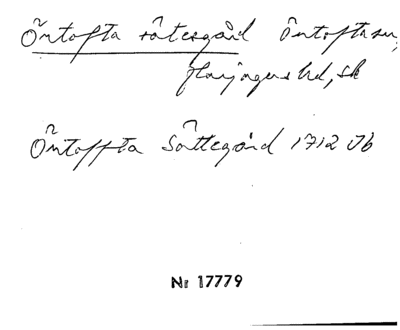 Öntofta råtesgård Öntofta sn,
Harjagers hd, Sk
Öntoffta Såttegård 1712 Jb
Nr 17779